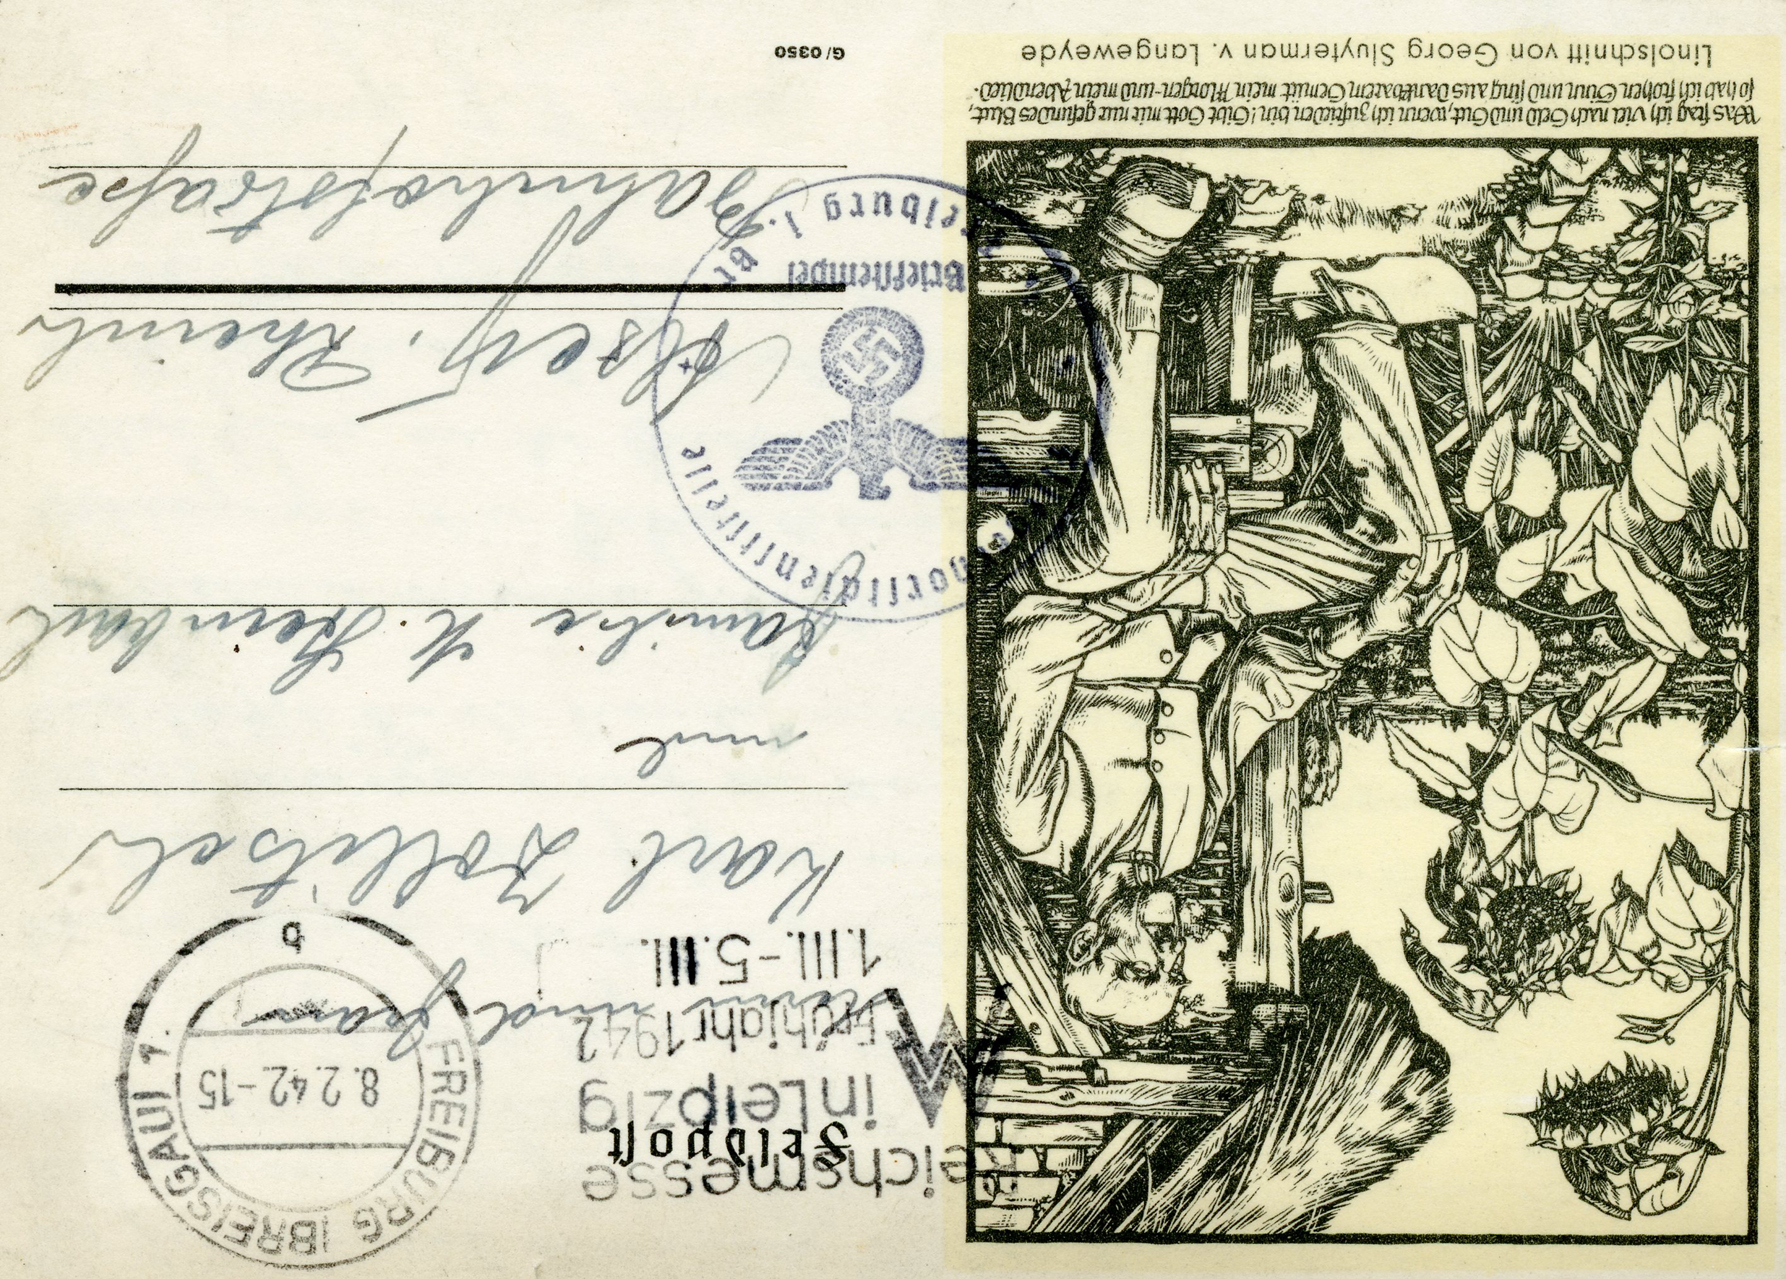 Was frag ich viel nach Geld und Gut, wenn ich zufrieden bin! Gibt Gott mir nur gesundes Blut,
so hab ich frohen Sinn und sing aus dankbarem Gemüt mein Morgen- und mein Abendlied.
Linolschnitt von Georg Sluyterman v. Langeweyde
Reichsmesse
Feldpost
in Leipzig
Frühjahr 1942
1.III.-5.III.
FREIBURG (BREISGAU) 1.
8.2.42-15
b
Herrn und Frau
Karl
und
Familie K.
Briefstempel
Freiburg i. Br.
Bahnhofstraße
G/0350